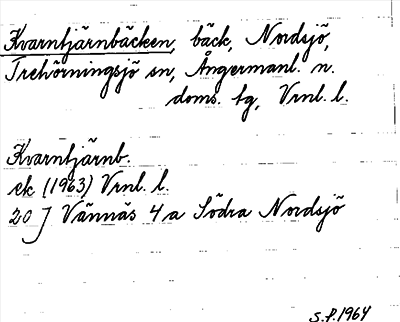 Kvarntjärnbäcken, bäck, Nordsjö,
Trehörningsjö sn, Ångermanl. n.
doms. tg, Vrnl. l.
Kvarntjärnb.
ek (1963) Vrnl. l.
20 J Vännäs 4a Södra Nordsjö
S.P. 1964